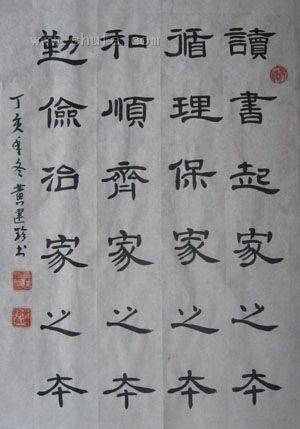 讀書起家之本
循理保家之本
和順齊家之本
勤儉治家之本
丁亥季冬黄選珍書